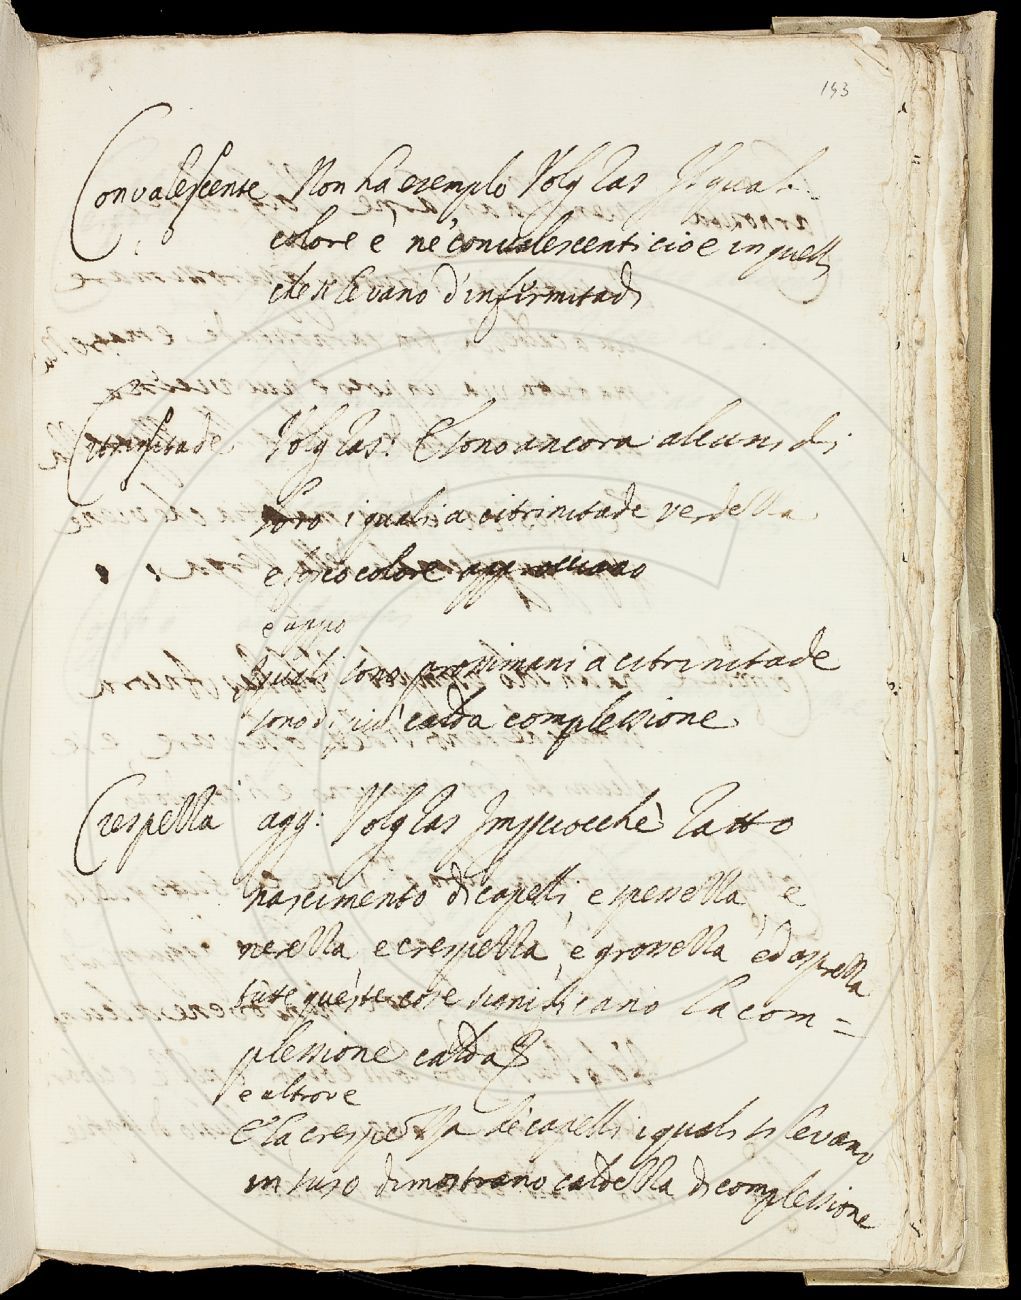 193
Convalescente Non ha esempio Volg Ras Il qual
colore è ne' convalescenti cioè in quelli
che si levano d'infirmitadi
Citrinitade Volg Ras: E sono ancora alcuni di
loro i quali a citrinitade verdella
e colore
e appo
quali sono prossimani a citrinitade
sono di più calda complessione
Crespella agg: Volg Ras Impciocchè ratto
nascimento di capelli, e spessella, e
nerella, e crespella, e grossella ed asprella
tutte queste cose significano la com=
plessione calda
e altrove
E la crespella de' capelli i quali si levano
in suso dimostrano caldella di complessione